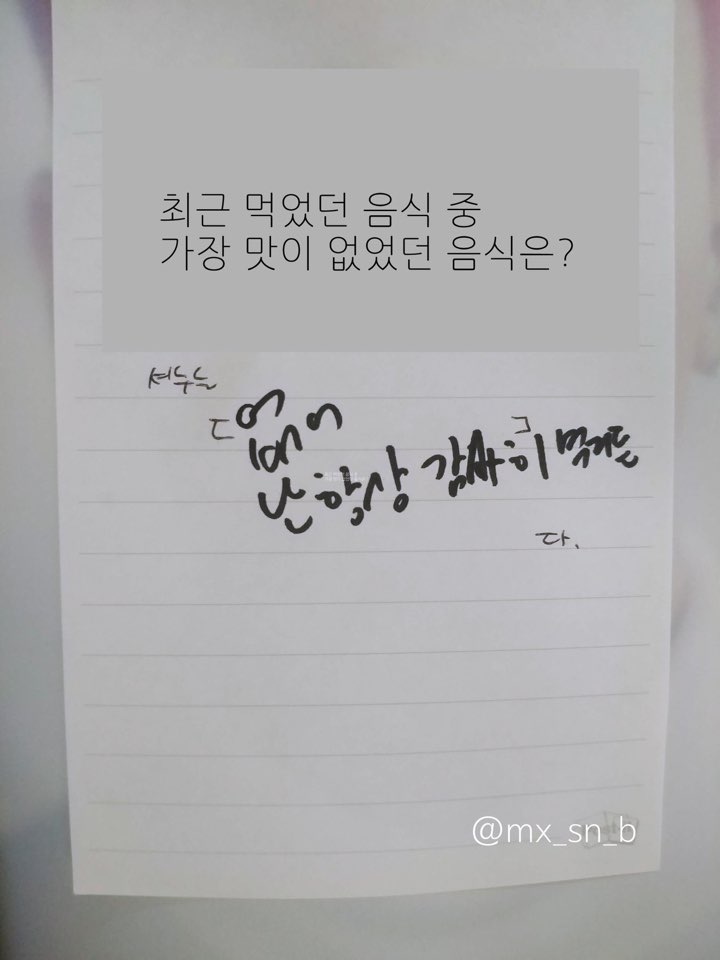 최근 먹었던 음식 중
가장 맛이 없었던 음식은?
셔누는
[없어
난 항상 감사히] 먹거든
다.
@mx_sn_b